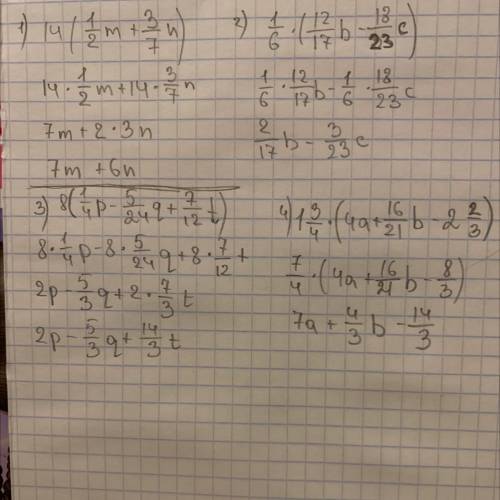 1) 14(1/2m + 3/7n)
14 · 1/2m + 14 · 3/7n
7m + 2 · 3n
7m + 6n
2) 1/6 · (12/17b - 18/23c)
1/6 · 12/17b - 1/6 · 18/23c
2/17b - 3/23c
3) 8(1/4p - 5/24q + 7/12t)
8 · 1/4p - 8 · 5/24q + 8 · 7/12t
2p - 5/3q + 2 · 7/3t
2p - 5/3q + 14/3t
4) 1 3/4 · (4a + 16/21b - 2 2/3)
7/4 · (4a + 16/21b - 8/3)
7a + 4/3b - 14/3